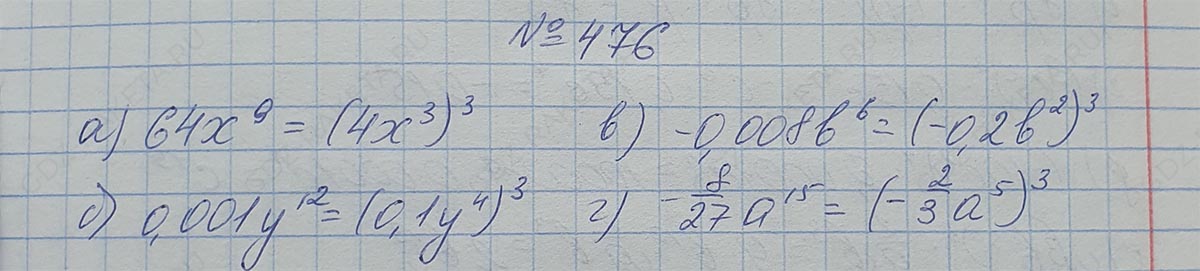 № 476
а) 64x⁹ = (4x³)³ в) -0,008b⁶ = (-0,2b²)³
б) 0,001y¹² = (0,1y⁴)³ г) -8/27 a¹⁵ = (-2/3 a⁵)³